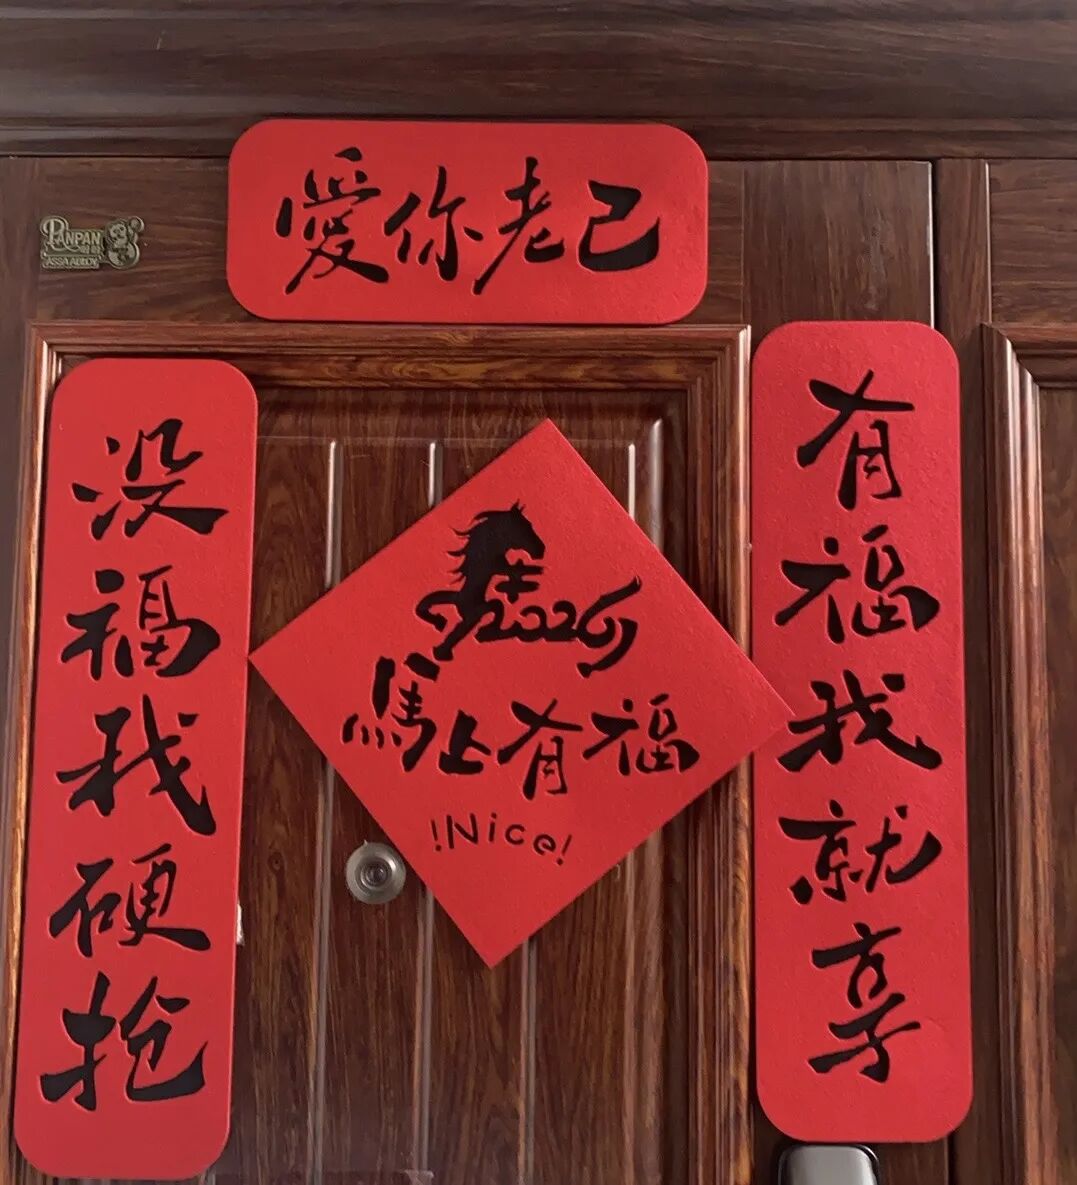 愛你老己
有福我就享
没福我硬抢
2026
馬上有福
!Nice!
PANPAN
ASSA ABLOY